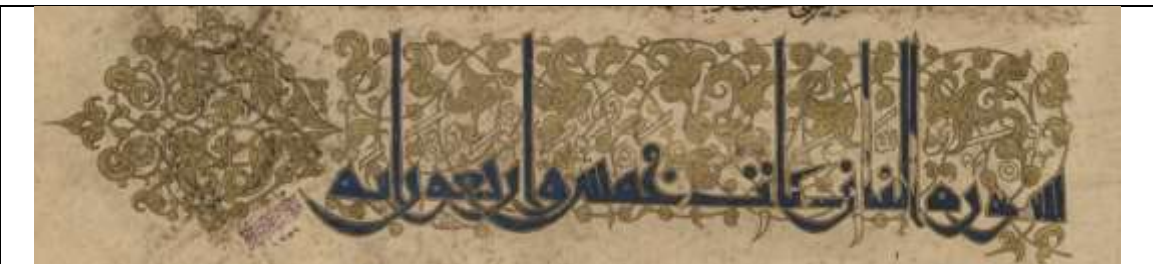 سورة النازعات خمس واربعون اية